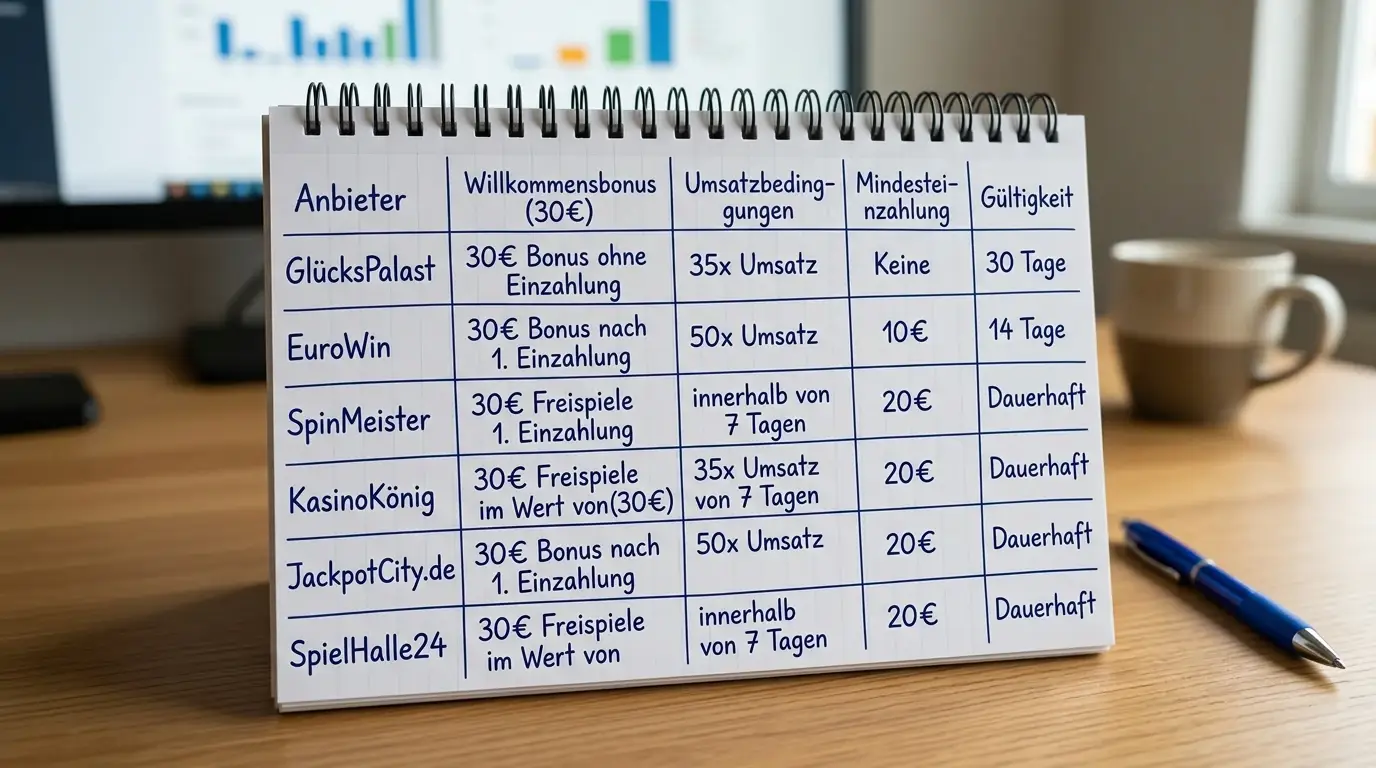 Anbieter
Willkommensbonus
(30€)
Umsatzbeding-
gungen
Mindestei-
nzahlung
Gültigkeit
GlücksPalast
30€ Bonus ohne
Einzahlung
35x Umsatz
Keine
30 Tage
EuroWin
30€ Bonus nach
1. Einzahlung
50x Umsatz
10€
14 Tage
SpinMeister
30€ Freispiele
1. Einzahlung
innerhalb von
7 Tagen
20€
Dauerhaft
KasinoKönig
30€ Freispiele
im Wert von(30€)
35x Umsatz
von 7 Tagen
20€
Dauerhaft
JackpotCity.de
30€ Bonus nach
1. Einzahlung
50x Umsatz
20€
Dauerhaft
SpielHalle24
30€ Freispiele
im Wert von
innerhalb
von 7 Tagen
20€
Dauerhaft